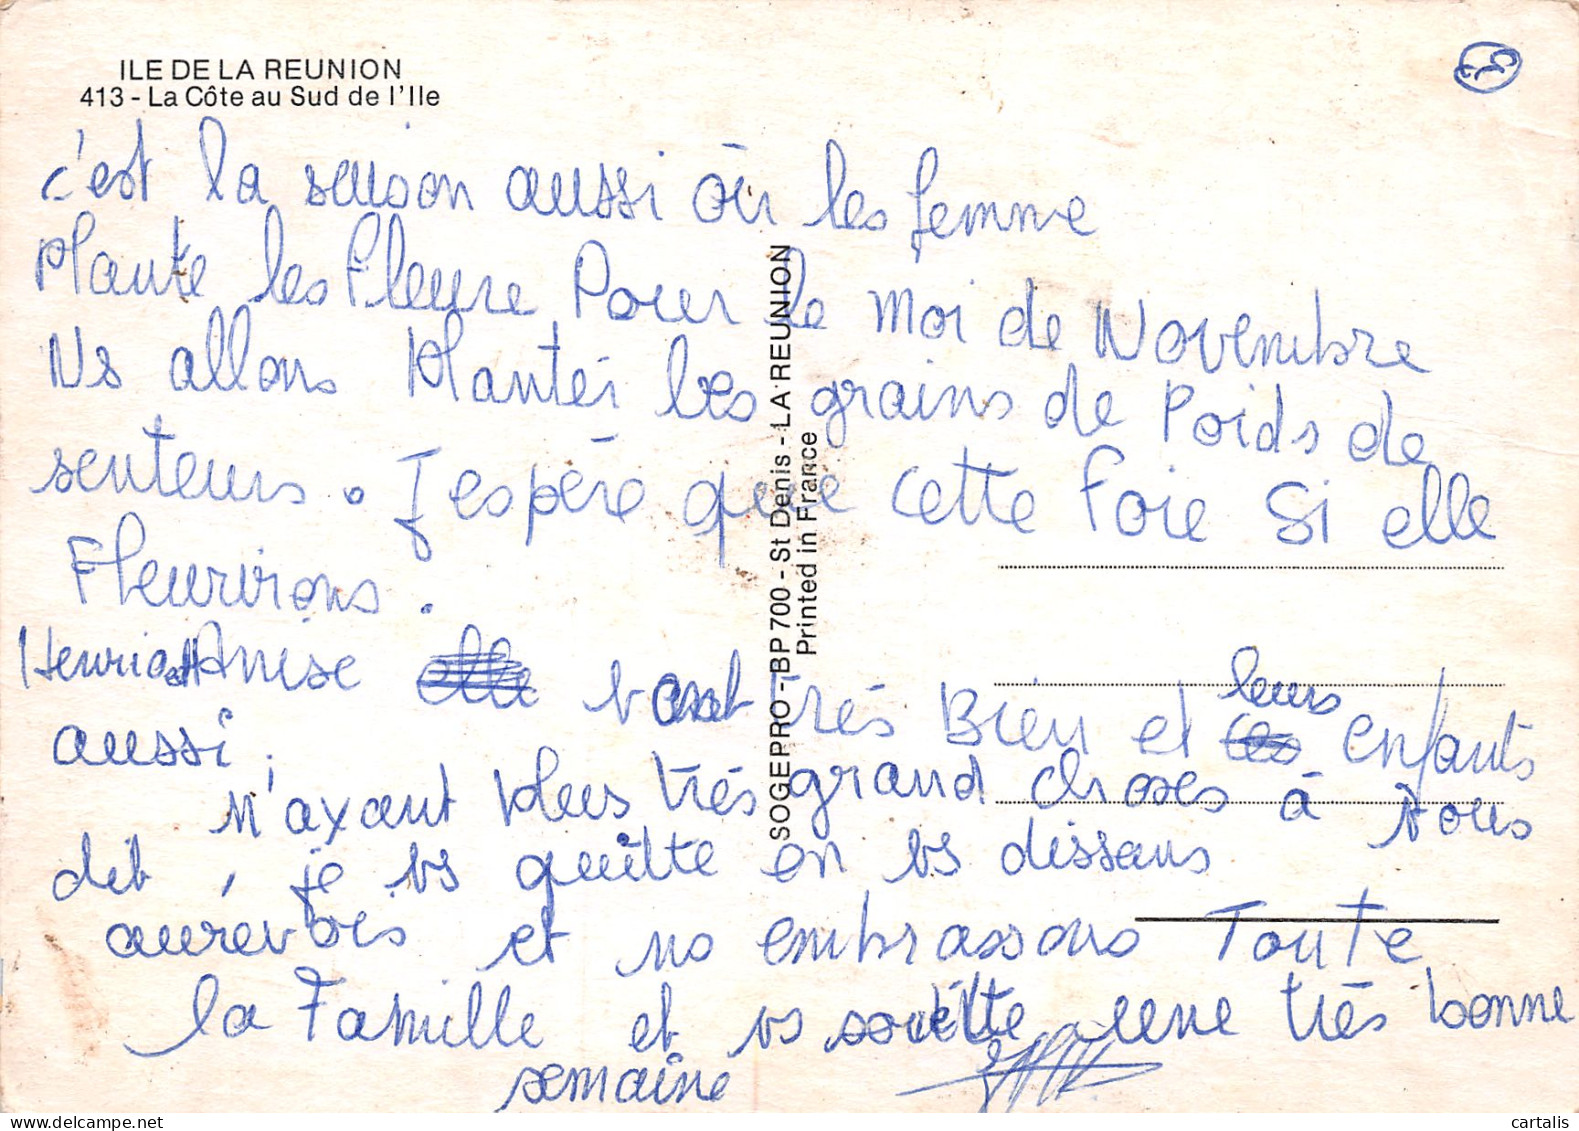 ILE DE LA REUNION
413 - La Côte au Sud de l'Ile
c'est la saison aussi où les femme
Plante les Fleure Pour le moi de Novembre
Ns allons Planter les grains de Poids de
senteurs. J espère que cette Foie Si elle
Fleurirons.
Henri et Anise vont très Bien et leurs enfants
aussi,
N'ayant plus très grand choses à vous
dit, je vs quitte en vs dissans
aurevois et ns embrassons Toute
la Famille et vs souette une très bonne
semaine
SOGEPRO - BP 700 - St Denis - LA REUNION
Printed in France
cartalis